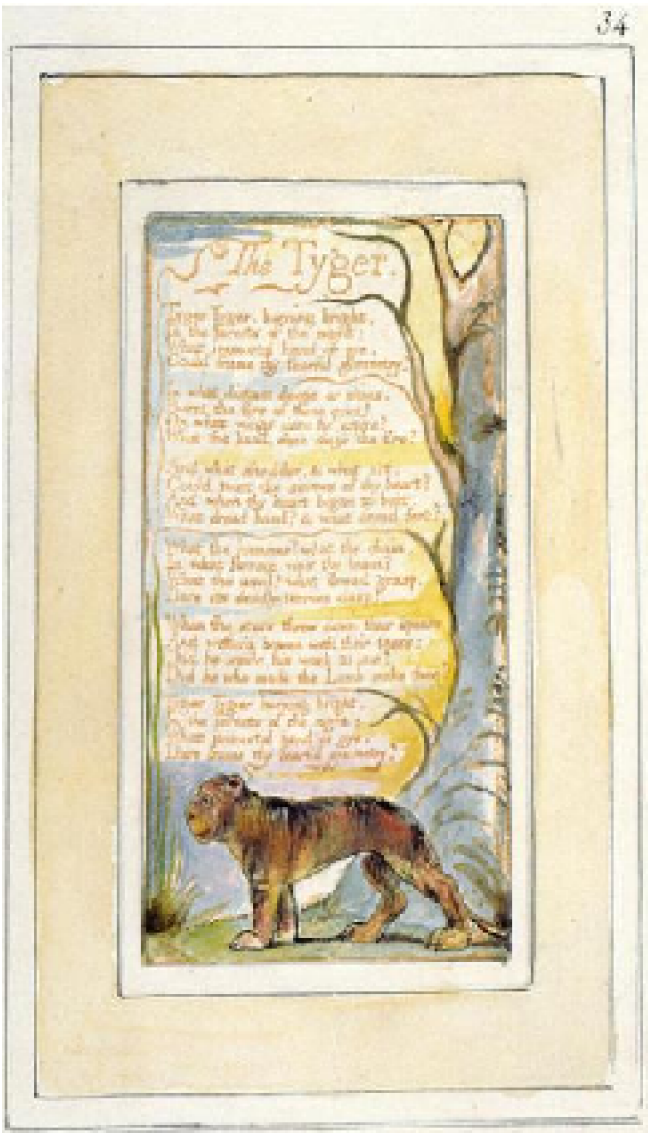 34
The Tyger.
Tyger Tyger, burning bright,
In the forests of the night;
What immortal hand or eye,
Could frame thy fearful symmetry?
In what distant deeps or skies.
Burnt the fire of thine eyes?
On what wings dare he aspire?
What the hand, dare sieze the fire?
And what shoulder, & what art,
Could twist the sinews of thy heart?
And when thy heart began to beat,
What dread hand? & what dread feet?
What the hammer? what the chain,
In what furnace was thy brain?
What the anvil? what dread grasp,
Dare its deadly terrors clasp!
When the stars threw down their spears
And with their tears:
Did he smile his work to see?
Did he who made the Lamb make thee?
Tyger Tyger burning bright,
In the forests of the night:
What immortal hand or eye,
Dare frame thy fearful symmetry?